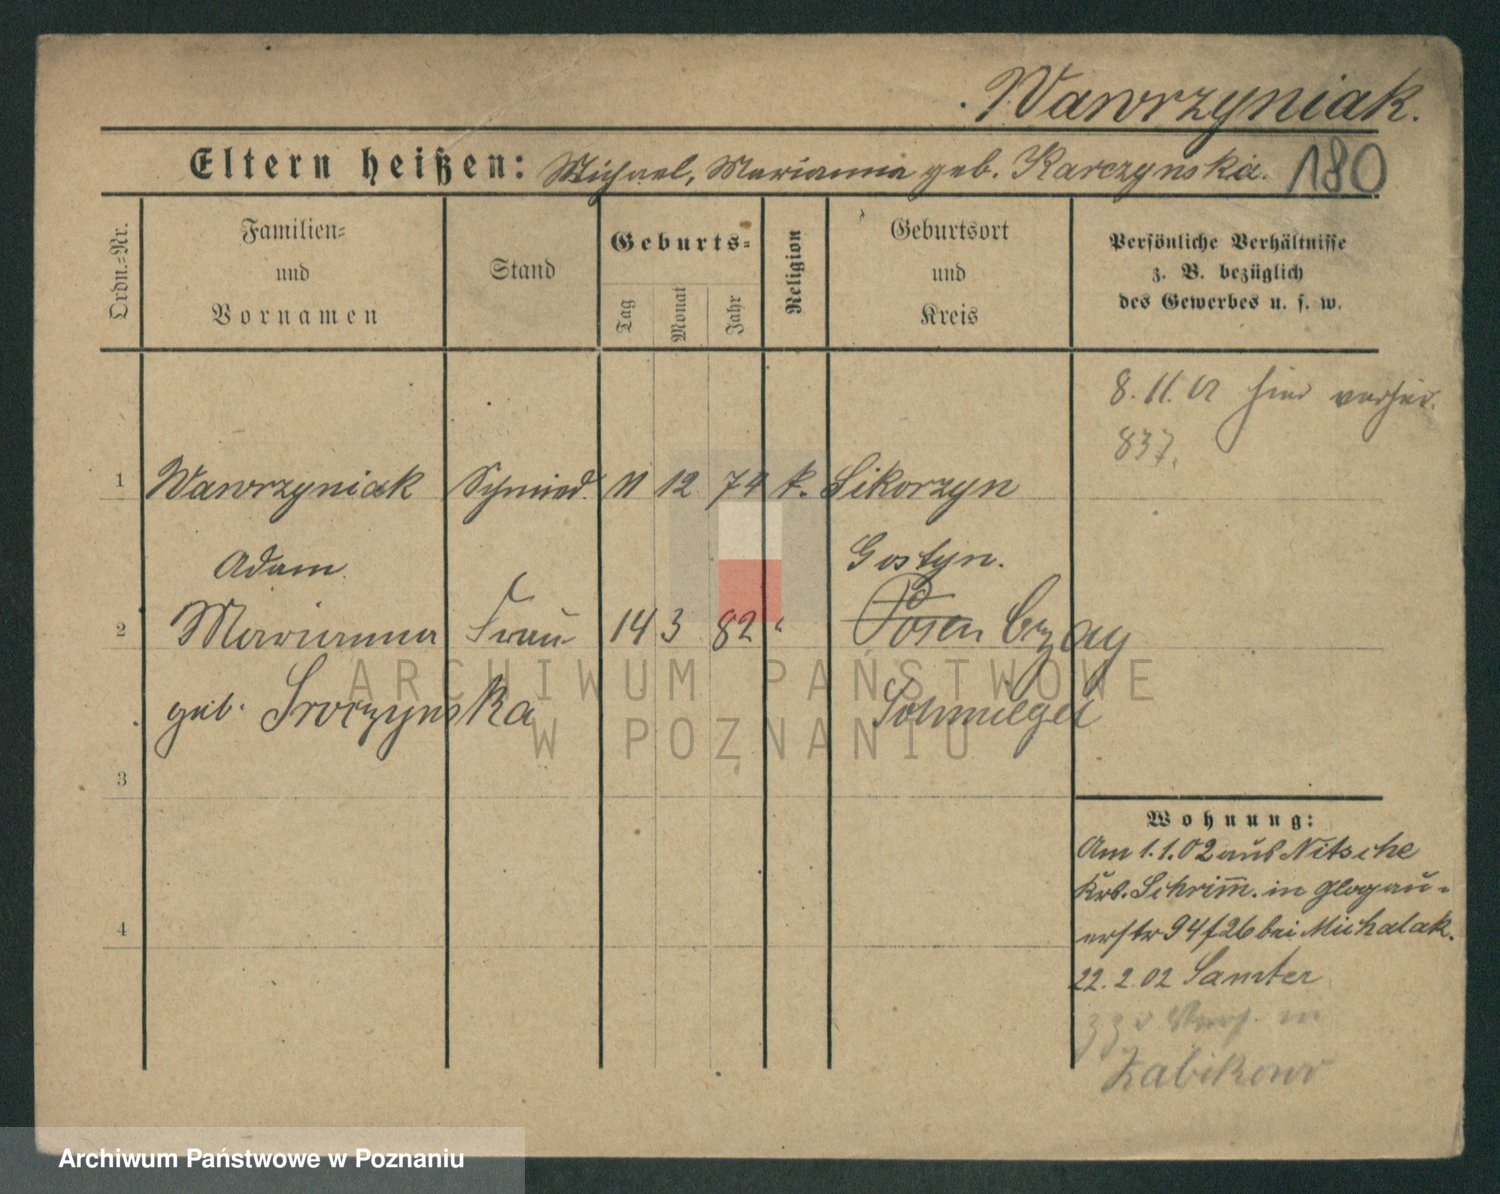 Wawrzyniak.
Eltern heißen: Michael, Marianna geb. Karczynska. 180
Ordn.-Nr.
Familien-
und
Vornamen
Stand
Geburts-
Tag
Monat
Jahr
Religion
Geburtsort
und
Kreis
Persönliche Verhältnisse
z. B. bezüglich
des Gewerbes u. s. w.
8. 11. 01 hier verheir.
837.
1 Wawrzyniak Schmied. 11 12 74 k. Sikorzyn
Adam Gostyn.
2 Marianna Frau 14 3 82 " Posen
geb. Sroczynska Schmiegel
3
4
Wohnung:
Am 1.1.02 aus Nitsche
Krs. Schrimm. in Glogau-
erstr 94/26 bei Michalak.
22. 2. 02 Samter
zzt in
Zabikowo
ARCHIWUM PAŃSTWOWE
W POZNANIU
Archiwum Państwowe w Poznaniu